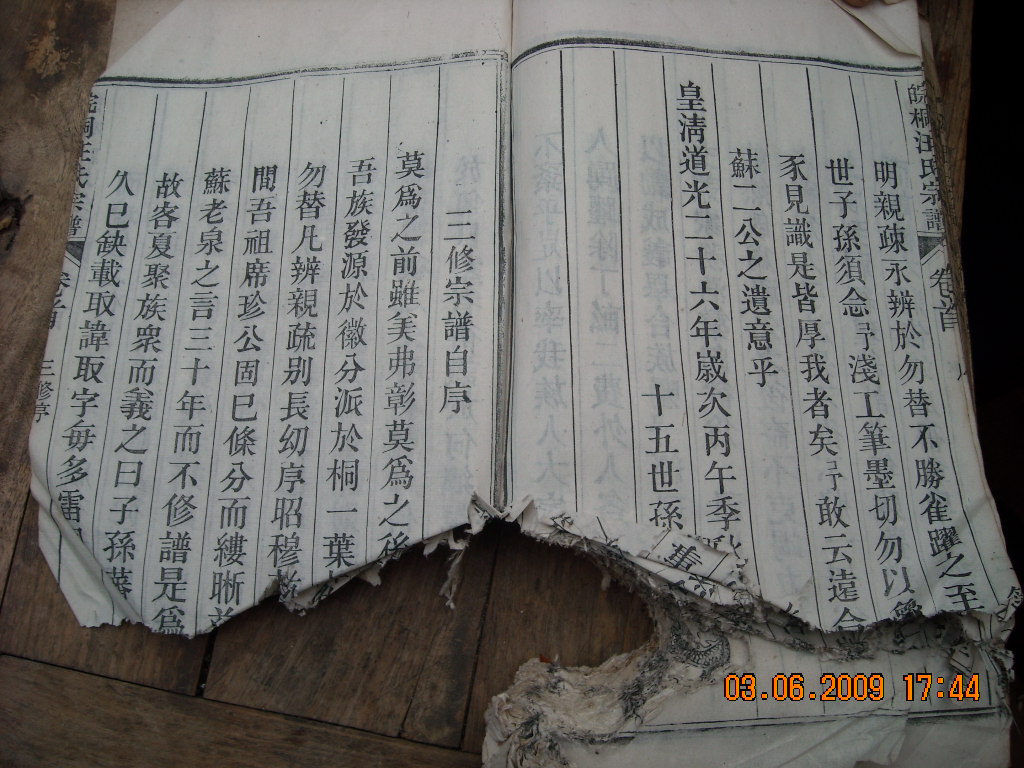 皖桐汪氏宗譜
卷首
明親疎永辨於勿替不勝雀躍之至
世子孫須念予淺工筆墨切勿以
豕見識是皆厚我者矣予敢云遠
蘇二公之遺意乎
皇淸道光二十六年歲次丙午季
十五世孫
三修宗譜自序
莫爲之前雖美弗彰莫爲之後
吾族發源於徽分派於桐一葉
勿替凡辨親疏别長幼序昭穆
間吾祖席珍公固已條分而縷晰
蘇老泉之言三十年而不修譜是爲
故客夏聚族衆而義之曰子孫蕃
久巳缺載取諱取字每多雷
宗譜
卷首
三修序
03.06.2009 17:44